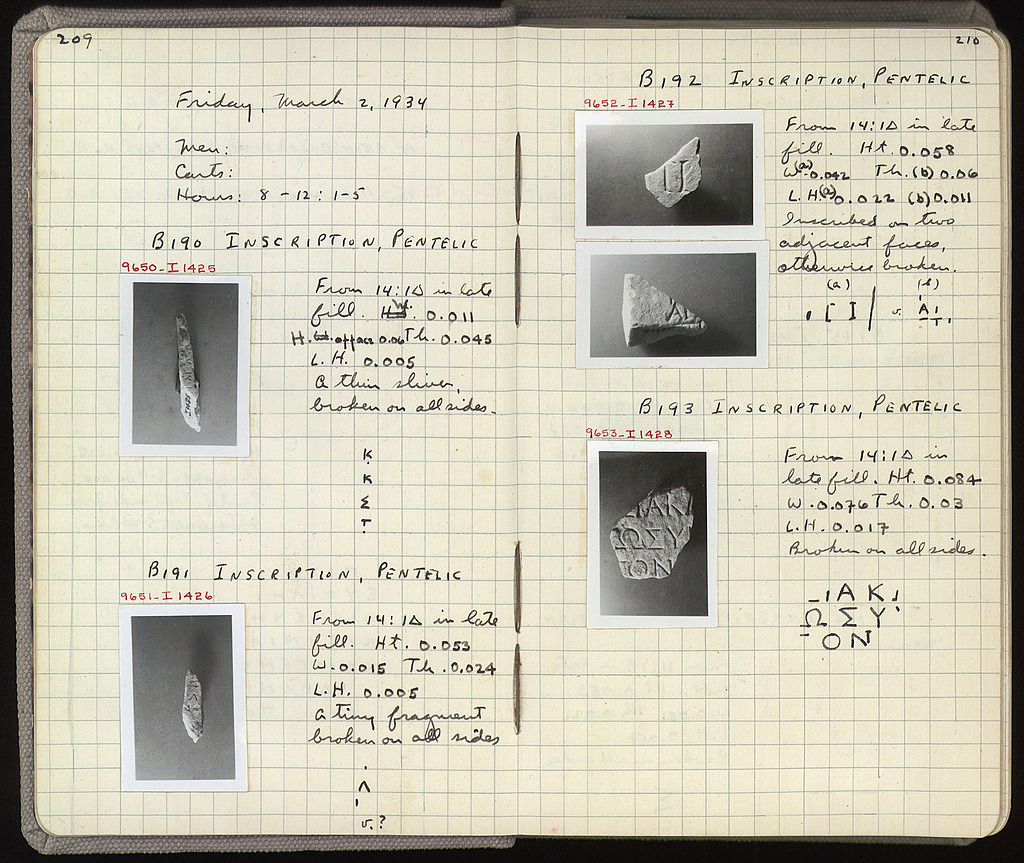 209
Friday, March 2, 1934
Men:
Carts:
Hours: 8 - 12 : 1-5
B190 INSCRIPTION, PENTELIC
9650-I 1425
From 14:ΙΔ in late
fill. W. 0.011
H. of face 0.06 Th. 0.045
L. H. 0.005
A thin sliver,
broken on all sides.
Κ
Κ
Σ
Τ
B191 INSCRIPTION, PENTELIC
9651-I 1426
From 14:ΙΔ in late
fill. Ht. 0.053
W. 0.015 Th. 0.024
L.H. 0.005
A tiny fragment
broken on all sides
Λ
v.?
210
B192 INSCRIPTION, PENTELIC
9652-I 1427
From 14:ΙΔ in late
fill. Ht. 0.058
W.(a) 0.042 Th. (b) 0.06
L. H.(a) 0.022 (b) 0.011
Inscribed on two
adjacent faces,
otherwise broken.
(a) (b)
[ I v. Α Ι
Τ
B193 INSCRIPTION, PENTELIC
9653-I 1428
From 14:ΙΔ in
late fill. Ht. 0.084
W. 0.076 Th. 0.03
L.H. 0.017
Broken on all sides.
Ι Α Κ Ι
Ω Σ Υ
Ο Ν